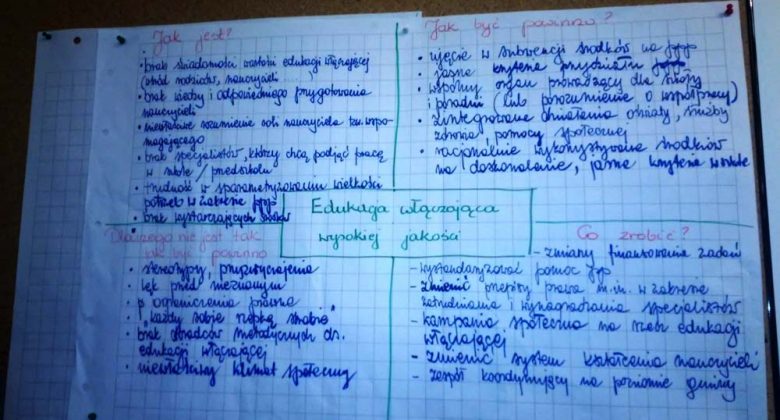 Jak jest?
• brak świadomości wartości edukacji włączającej
(wśród rodziców, nauczycieli
• brak wiedzy i odpowiedniego przygotowania
nauczycieli
• niewłaściwe rozumienie roli nauczyciela tzw. wspo-
magającego
• brak specjalistów, którzy chcą podjąć pracę
w szkole / przedszkolu
• trudność w sparametryzowaniu wielkości
potrzeb w zakresie ppp
• brak wystarczających środków
Jak być powinno?
• ujęcie w subwencji środków na ppp
jasne kryteria przydziału
• wspólny organ prowadzący dla szkoły
i poradni (lub porozumienie o współpracy)
• zintegrowane działania oświaty, służby
zdrowia pomocy społecznej
• racjonalnie wykorzystywanie środków
na doskonalenie, jasne kryteria
Edukacja włączająca
wysokiej jakości
Dlaczego nie jest tak
jak być powinno
• stereotypy, przyzwyczajenia
• lęk przed nieznanym
• ograniczenia prawne
• "każdy sobie rzepkę skrobie"
• brak doradców metodycznych ds.
edukacji włączającej
• niewłaściwy klimat społeczny
Co zrobić?
- zmiany finansowania zadań
- wystandaryzować pomoc pp
- zmienić przepisy prawa m.in. w zakresie
zatrudniania i wynagradzania specjalistów
- kampania społeczna na rzecz edukacji
włączającej
- zmienić system kształcenia nauczycieli
- zespół koordynujący na poziomie gminy